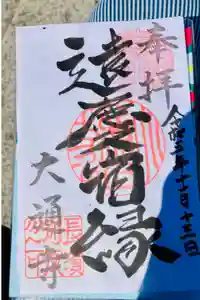 奉拝
令和三年十一月十三日
遠慶宿縁
大通寺